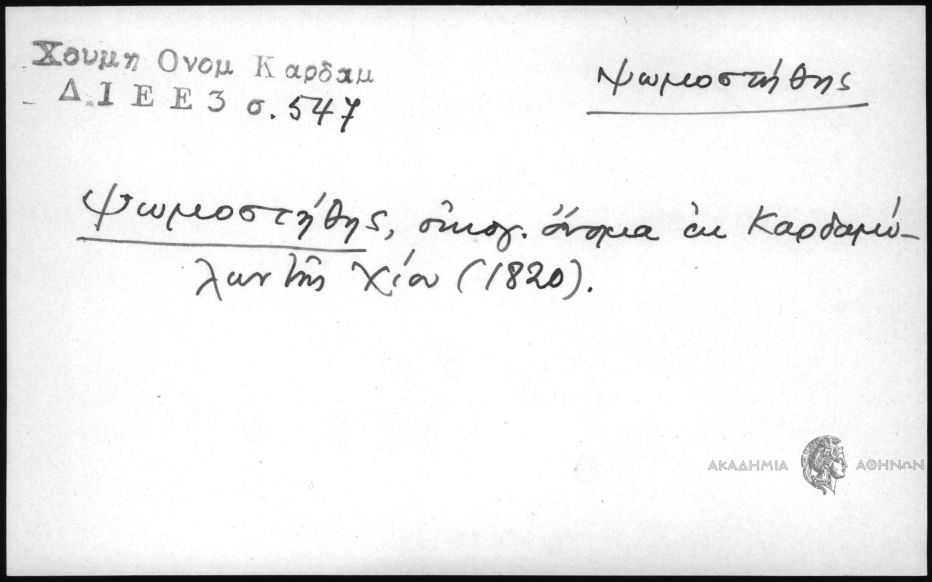 Χουμη Ονομ Καρδαμ
Δ.Ι Ε Ε 3 σ. 547
Ψωμοστήθης
Ψωμοστήθης, οἰκογ. ὄνομα ἐκ Καρδαμύ-
λων τῆς Χίου (1820).
ΑΚΑΔΗΜΙΑ ΑΘΗΝΩΝ